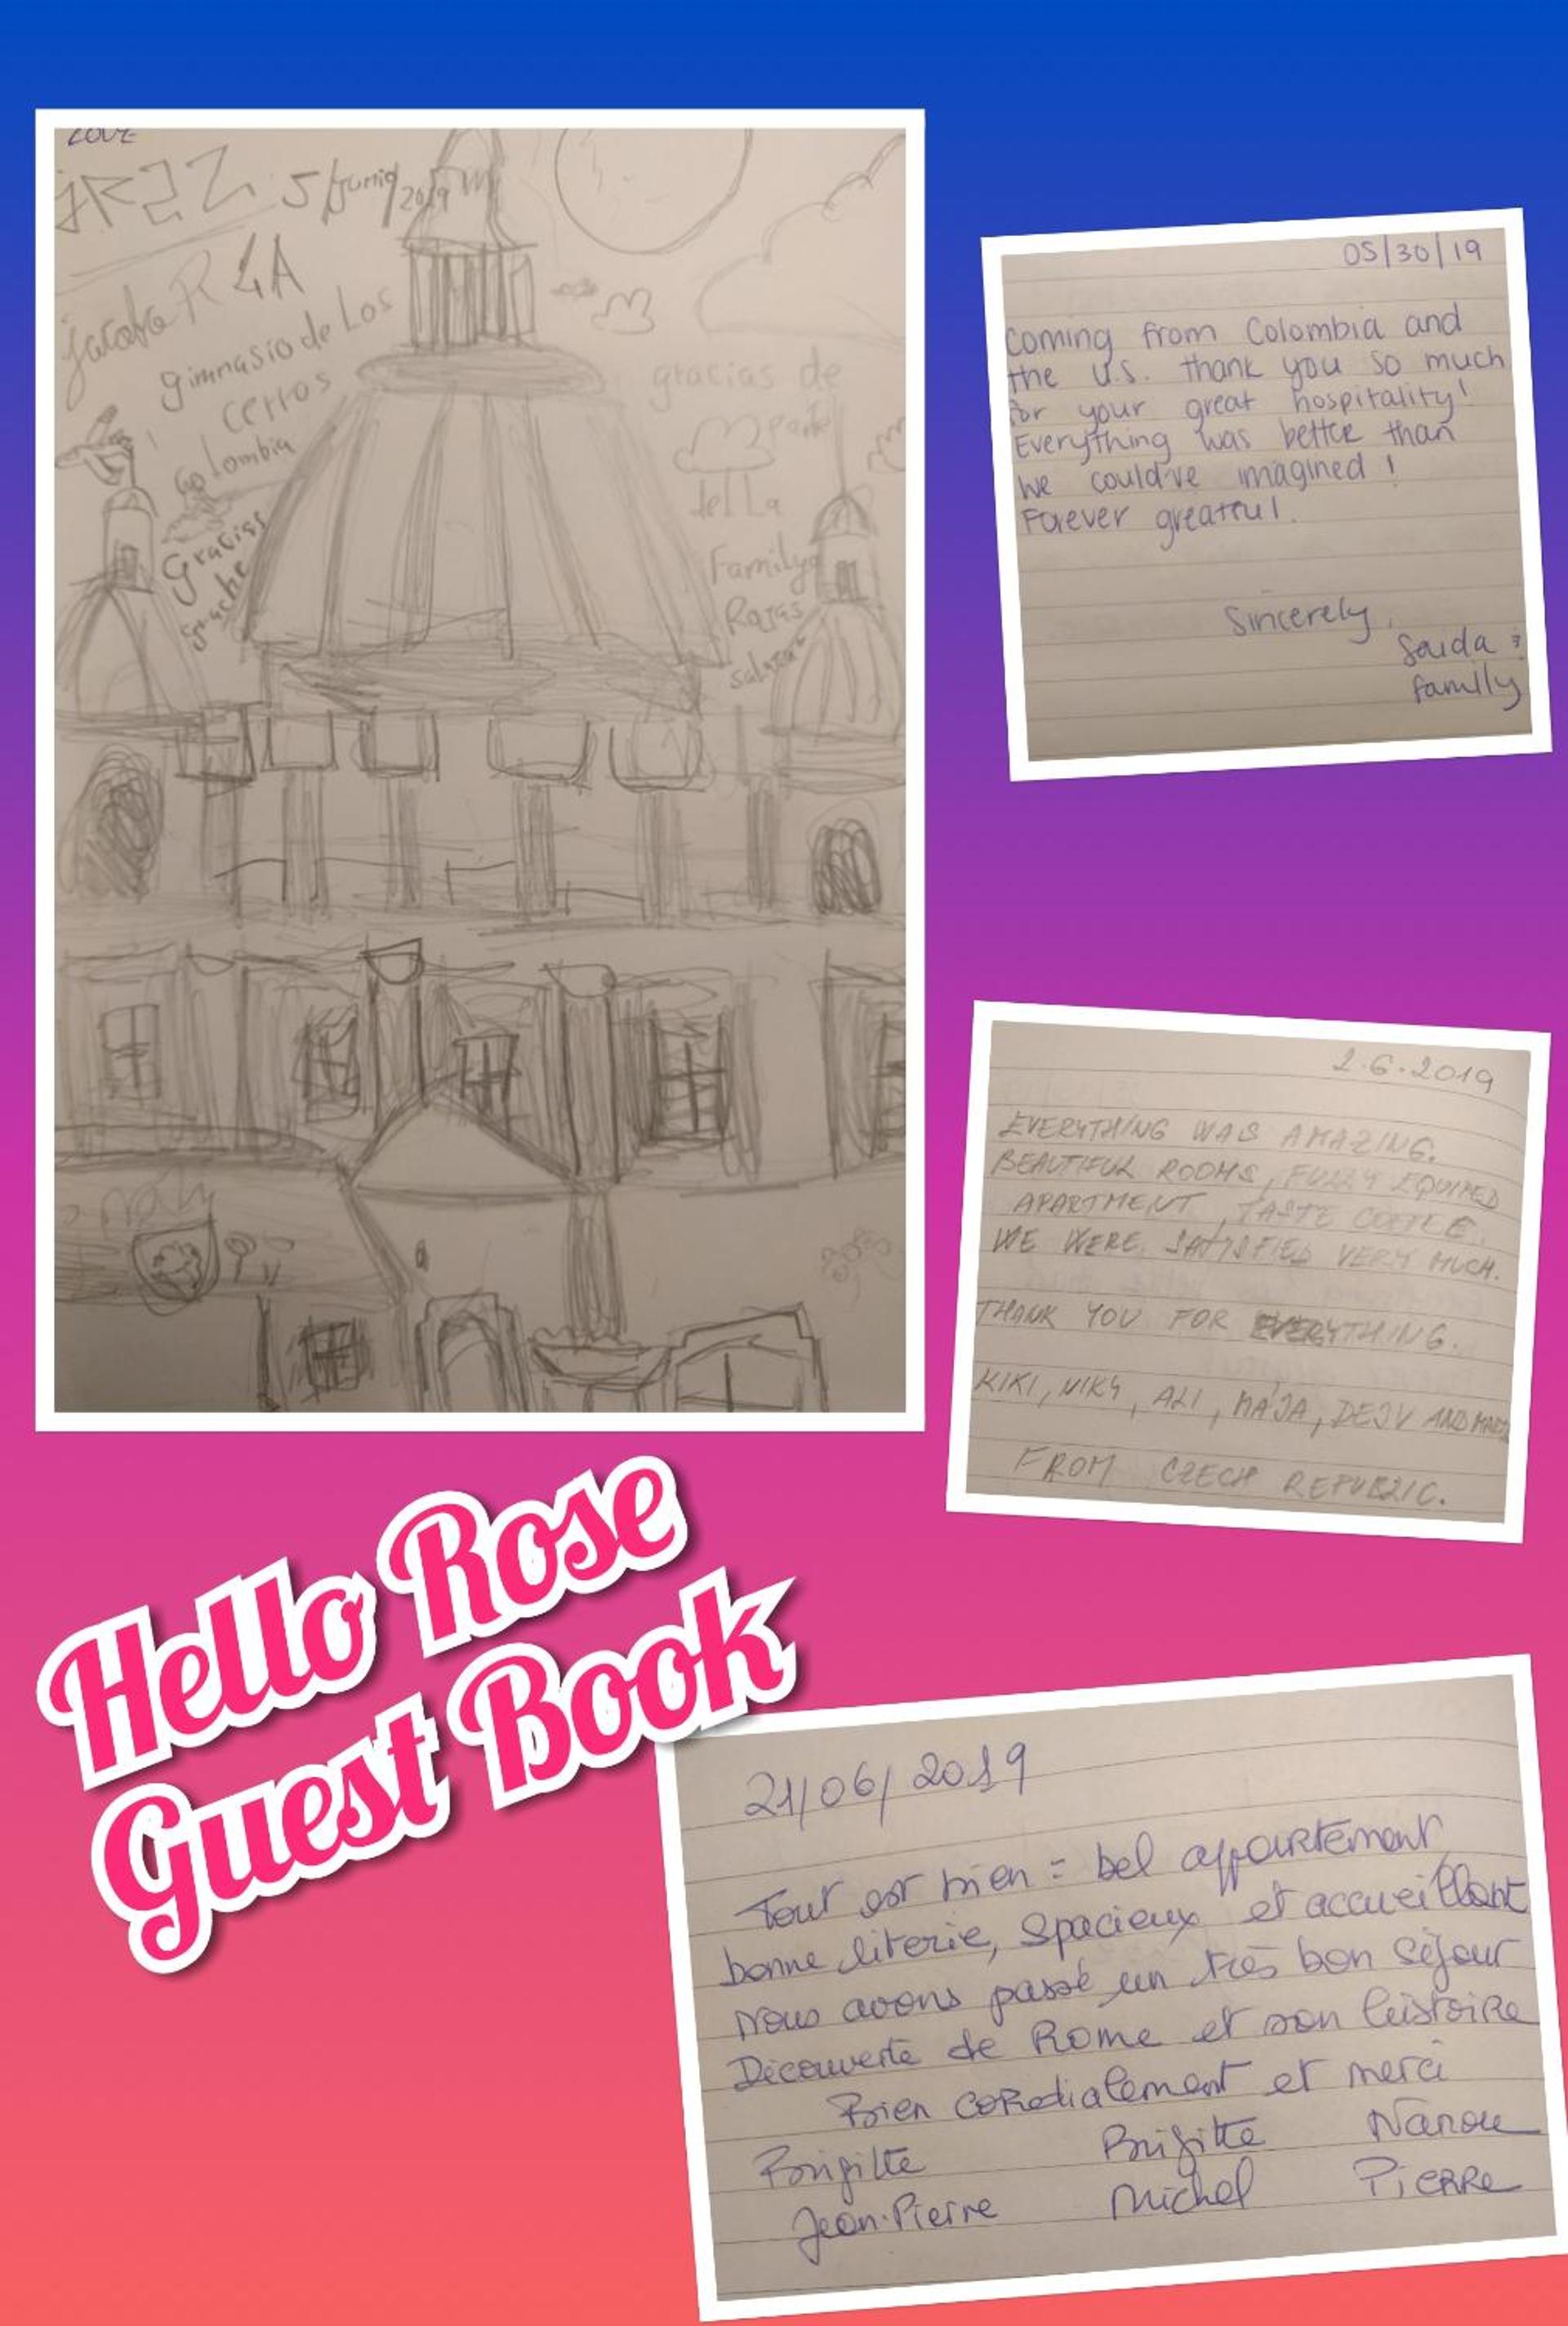 LOVE
5/Junio/2019
Jacobo R 4A
gimnasio de Los
cerros
Colombia
Graciss
grache
gracias de
parte
della
Familya
Rojas
Salazar
05/30/19
Coming from Colombia and
the U.S. thank you so much
for your great hospitality!
Everything was better than
we could've imagined!
Forever greatful.
Sincerely,
Saida &
family
2.6.2019
EVERYTHING WAS AMAZING.
BEAUTIFUL ROOMS, FULLY EQUIPED
APARTMENT, TASTE COFFEE.
WE WERE SATISFIED VERY MUCH.
THANK YOU FOR EVERYTHING.
KIKI, NIKY, ALI, MÁJA, DEJV AND
FROM CZECH REPUBLIC.
Hello Rose
Guest Book
21/06/2019
Tout est bien = bel appartement,
bonne literie, spacieux et accueillant
nous avons passé un très bon séjour
Découverte de Rome et son histoire
Bien cordialement et merci
Brigitte Brigitte Nanou
Jean-Pierre Michel Pierre